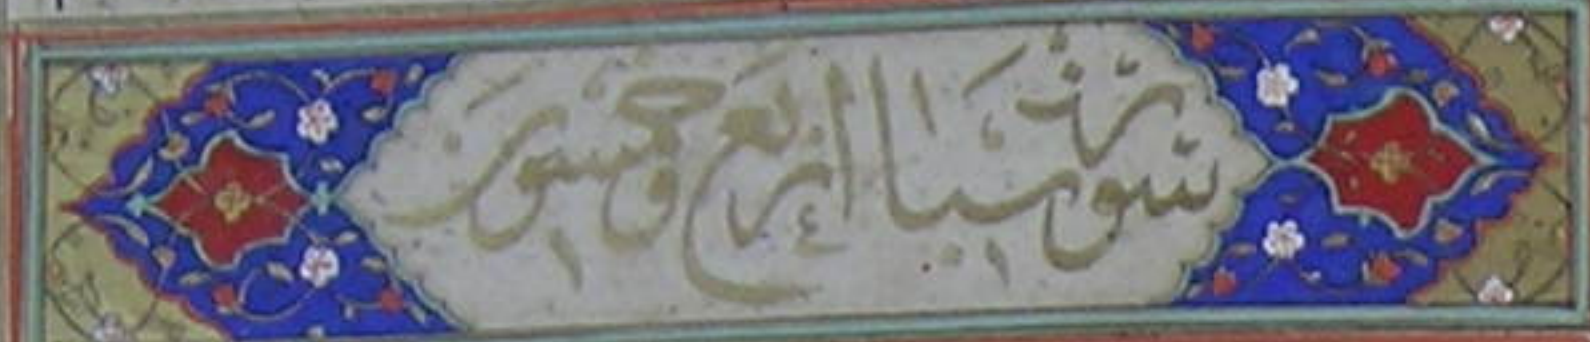 سورة سبا اربع وخمسون